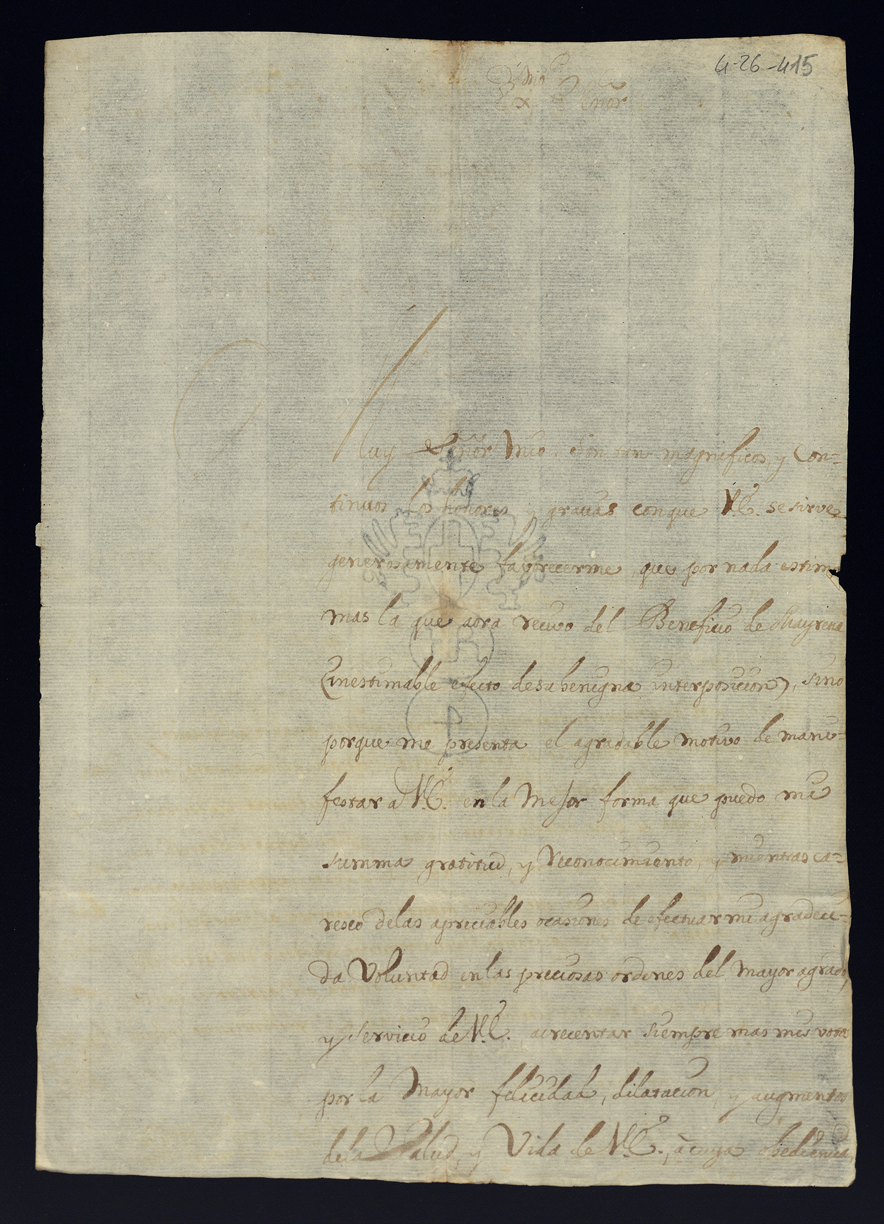 4-26-415
Exmo Señor
Muy Señor Mio. Son tan magnificos, y Con=
tinuos los honores y gracias conque V.E. se sirve
generosamente favorecerme que por nada estim
mas la que aora recivo del Beneficio de Mayrena
(inestimable efecto desu benigna interposicion), sino
porque me presenta el agradable motivo de mani=
festar a V.E. en la Mejor forma que puedo mi
summa gratitud, y Reconocimiento, y mientras ca=
resco delas apreciables ocasiones de efectuar mi agradeci=
da Voluntad en las preciosas ordenes del mayor agrado,
y servicio de V.E. acrecentar siempre mas mis votos
por la Mayor felicidad, dilatacion, y augmentos
dela Salud, y Vida de V.E., à cuya obediencia